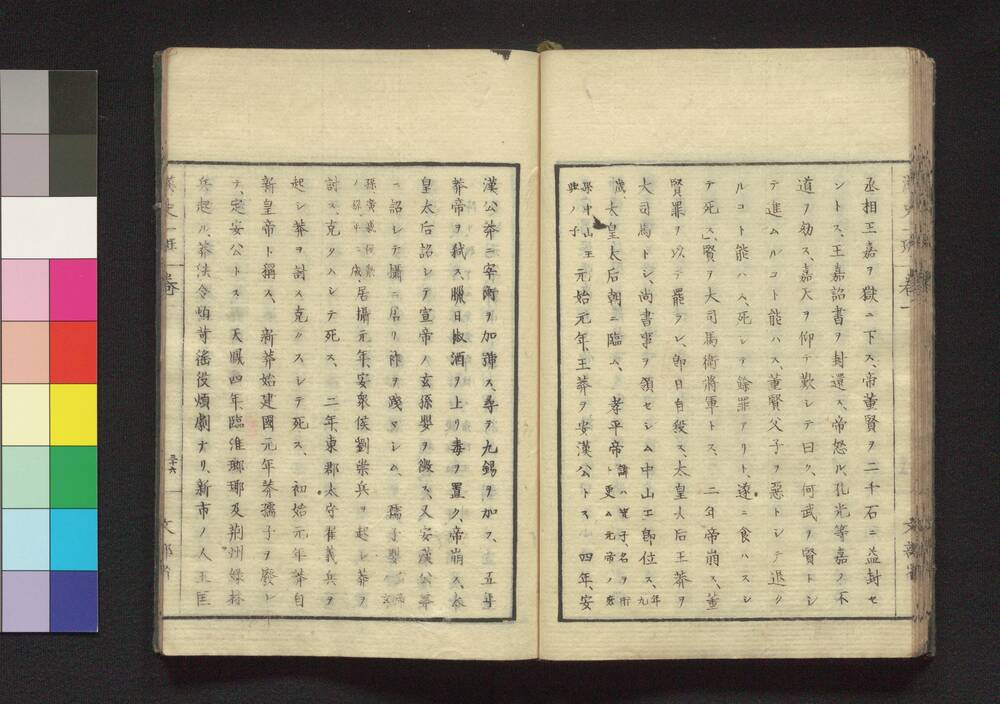 丞相王嘉ヲ獄ニ下ス、帝董賢ヲ二千石ニ益封セ
ントス、王嘉詔書ヲ封還ス、帝怒ル、孔光等嘉ノ不
道ヲ劾ス、嘉天ヲ仰テ歎シテ曰ク、何武ヲ賢トシ
テ進ムルコト能ハス、董賢父子ヲ惡トシテ退ク
ルコト能ハス、死シテ餘罪アリト、遂ニ食ハスシ
テ死ス、賢ヲ大司馬衛將軍トス、二年帝崩ス、董
賢罪ヲ以テ罷ラレ、即日自殺ス、太皇太后王莽ヲ
大司馬トシ、尚書事ヲ領セシム中山王即位ス、年九
歳、太皇太后朝ニ臨ム、孝平帝諱ハ箕子、名ヲ衎ト更ム元帝ノ庶
孫中山王興ノ子元始元年、王莽ヲ安漢公トス 四年、安
漢公莽ニ宰衡ヲ加號ス、尋テ九錫ヲ加フ、五年
莽帝ヲ弑ス、臘日椒酒ヲ上リ毒ヲ置ク、帝崩ス、太
皇太后詔シテ宣帝ノ玄孫嬰ヲ徴ス、又安漢公莽
ニ詔シテ攝ニ居リ祚ヲ踐マシム、孺子嬰
居攝元年、安衆侯劉崇兵ヲ起シ莽ヲ
討ス、克タスシテ死ス、二年、東郡太守翟義兵ヲ
起シ莽ヲ討ス克タスシテ死ス、初始元年莽自
新皇帝ト稱ス、新莽始建國元年莽孺子ヲ廢シ
テ、定安公トス 天鳳四年、臨淮瑯琊及荊州緑林
兵起ル、莽法令煩苛徭役煩劇ナリ、新市ノ人王匡
漢史一班 巻一
三十六
文部省